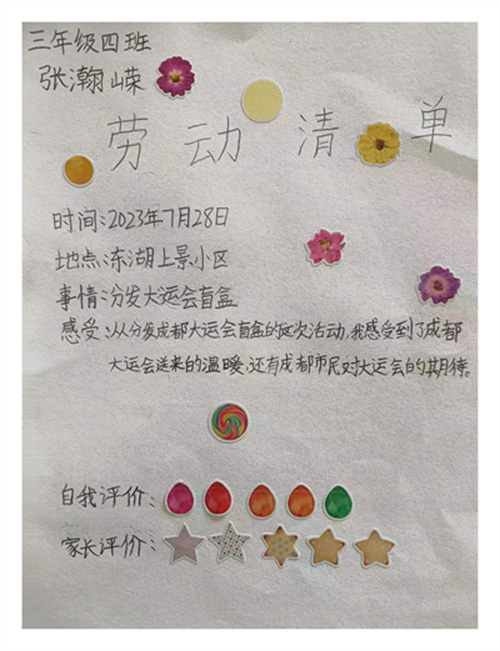 三年级四班
张瀚嵘
劳动清单
时间:2023年7月28日
地点:东湖上景小区
事情:分发大运会盲盒
感受:从分发成都大运会盲盒的这次活动,我感受到了成都
大运会送来的温暖,还有成都市民对大运会的期待。
自我评价:
家长评价: